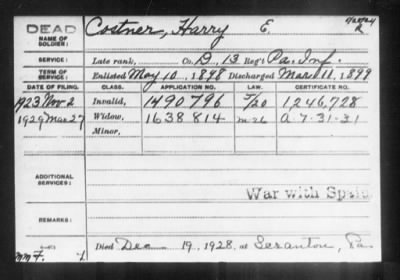 DEAD
NAME OF SOLDIER:
Costner, Harry E.
SERVICE:
Late rank, Co. D, 13 Reg't Pa. Inf.
TERM OF SERVICE:
Enlisted May 10, 1898 Discharged Mar. 11, 1899
DATE OF FILING. CLASS. APPLICATION NO. LAW. CERTIFICATE NO.
1923 Nov 2 Invalid, 1490796 1246,728
1929 Mar 27 Widow, 1638814 M-26 A 7-31-31
Minor,
ADDITIONAL SERVICES:
War with Spain
REMARKS:
Died Dec 19, 1928, at Scranton, Pa.